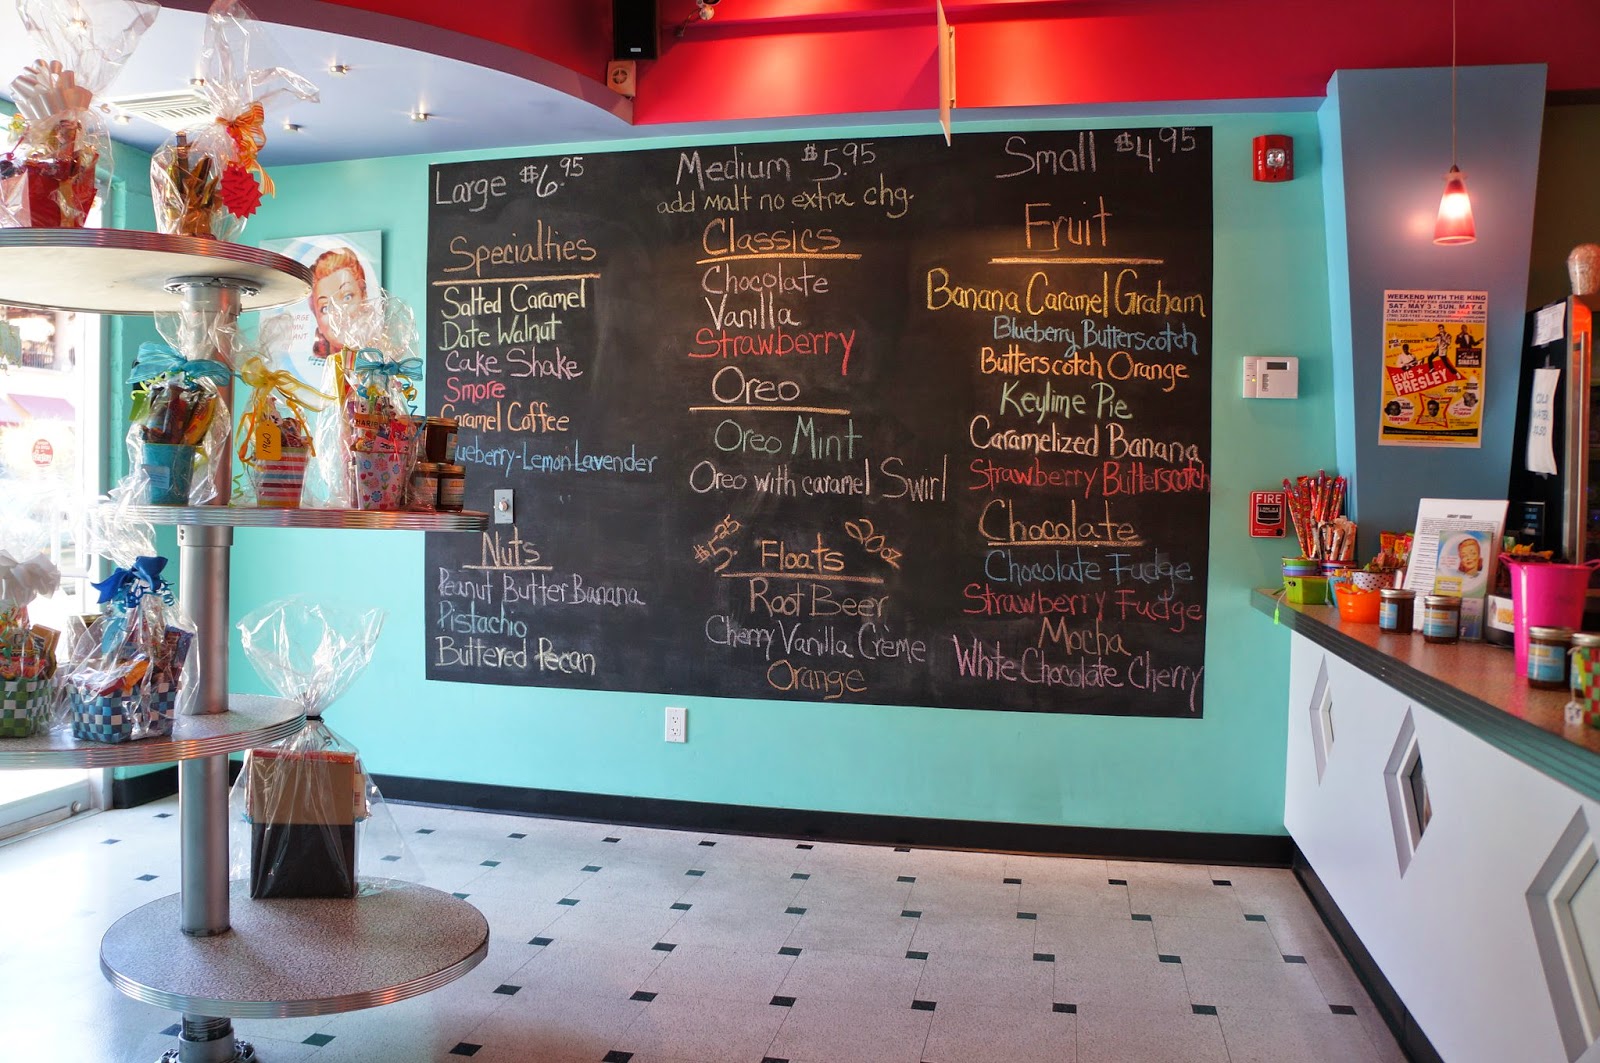 Large $6.95
Medium $5.95
Small $4.95
add Malt no extra chg.
Specialties
Salted Caramel
Date Walnut
Cake Shake
Smore
Caramel Coffee
ueberry-Lemon Lavender
Nuts
Peanut Butter Banana
Pistachio
Buttered Pecan
Classics
Chocolate
Vanilla
Strawberry
Oreo
Oreo Mint
Oreo with caramel Swirl
$5.25
Floats
20 oz
Root Beer
Cherry Vanilla Crème
Orange
Fruit
Banana Caramel Graham
Blueberry Butterscotch
Butterscotch Orange
Keylime Pie
Caramelized Banana
Strawberry Butterscotch
Chocolate
Chocolate Fudge
Strawberry Fudge
Mocha
White Chocolate Cherry
WEEKEND WITH THE KING
SAT. MAY 3 - SUN. MAY 4
ELVIS
PRESLEY
FIRE
COLD
WATER
1960